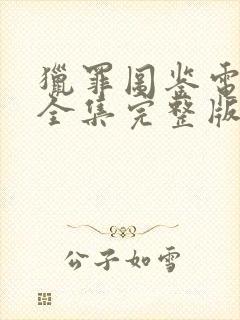 獵罪图鉴电
全集完整版
公子如雪